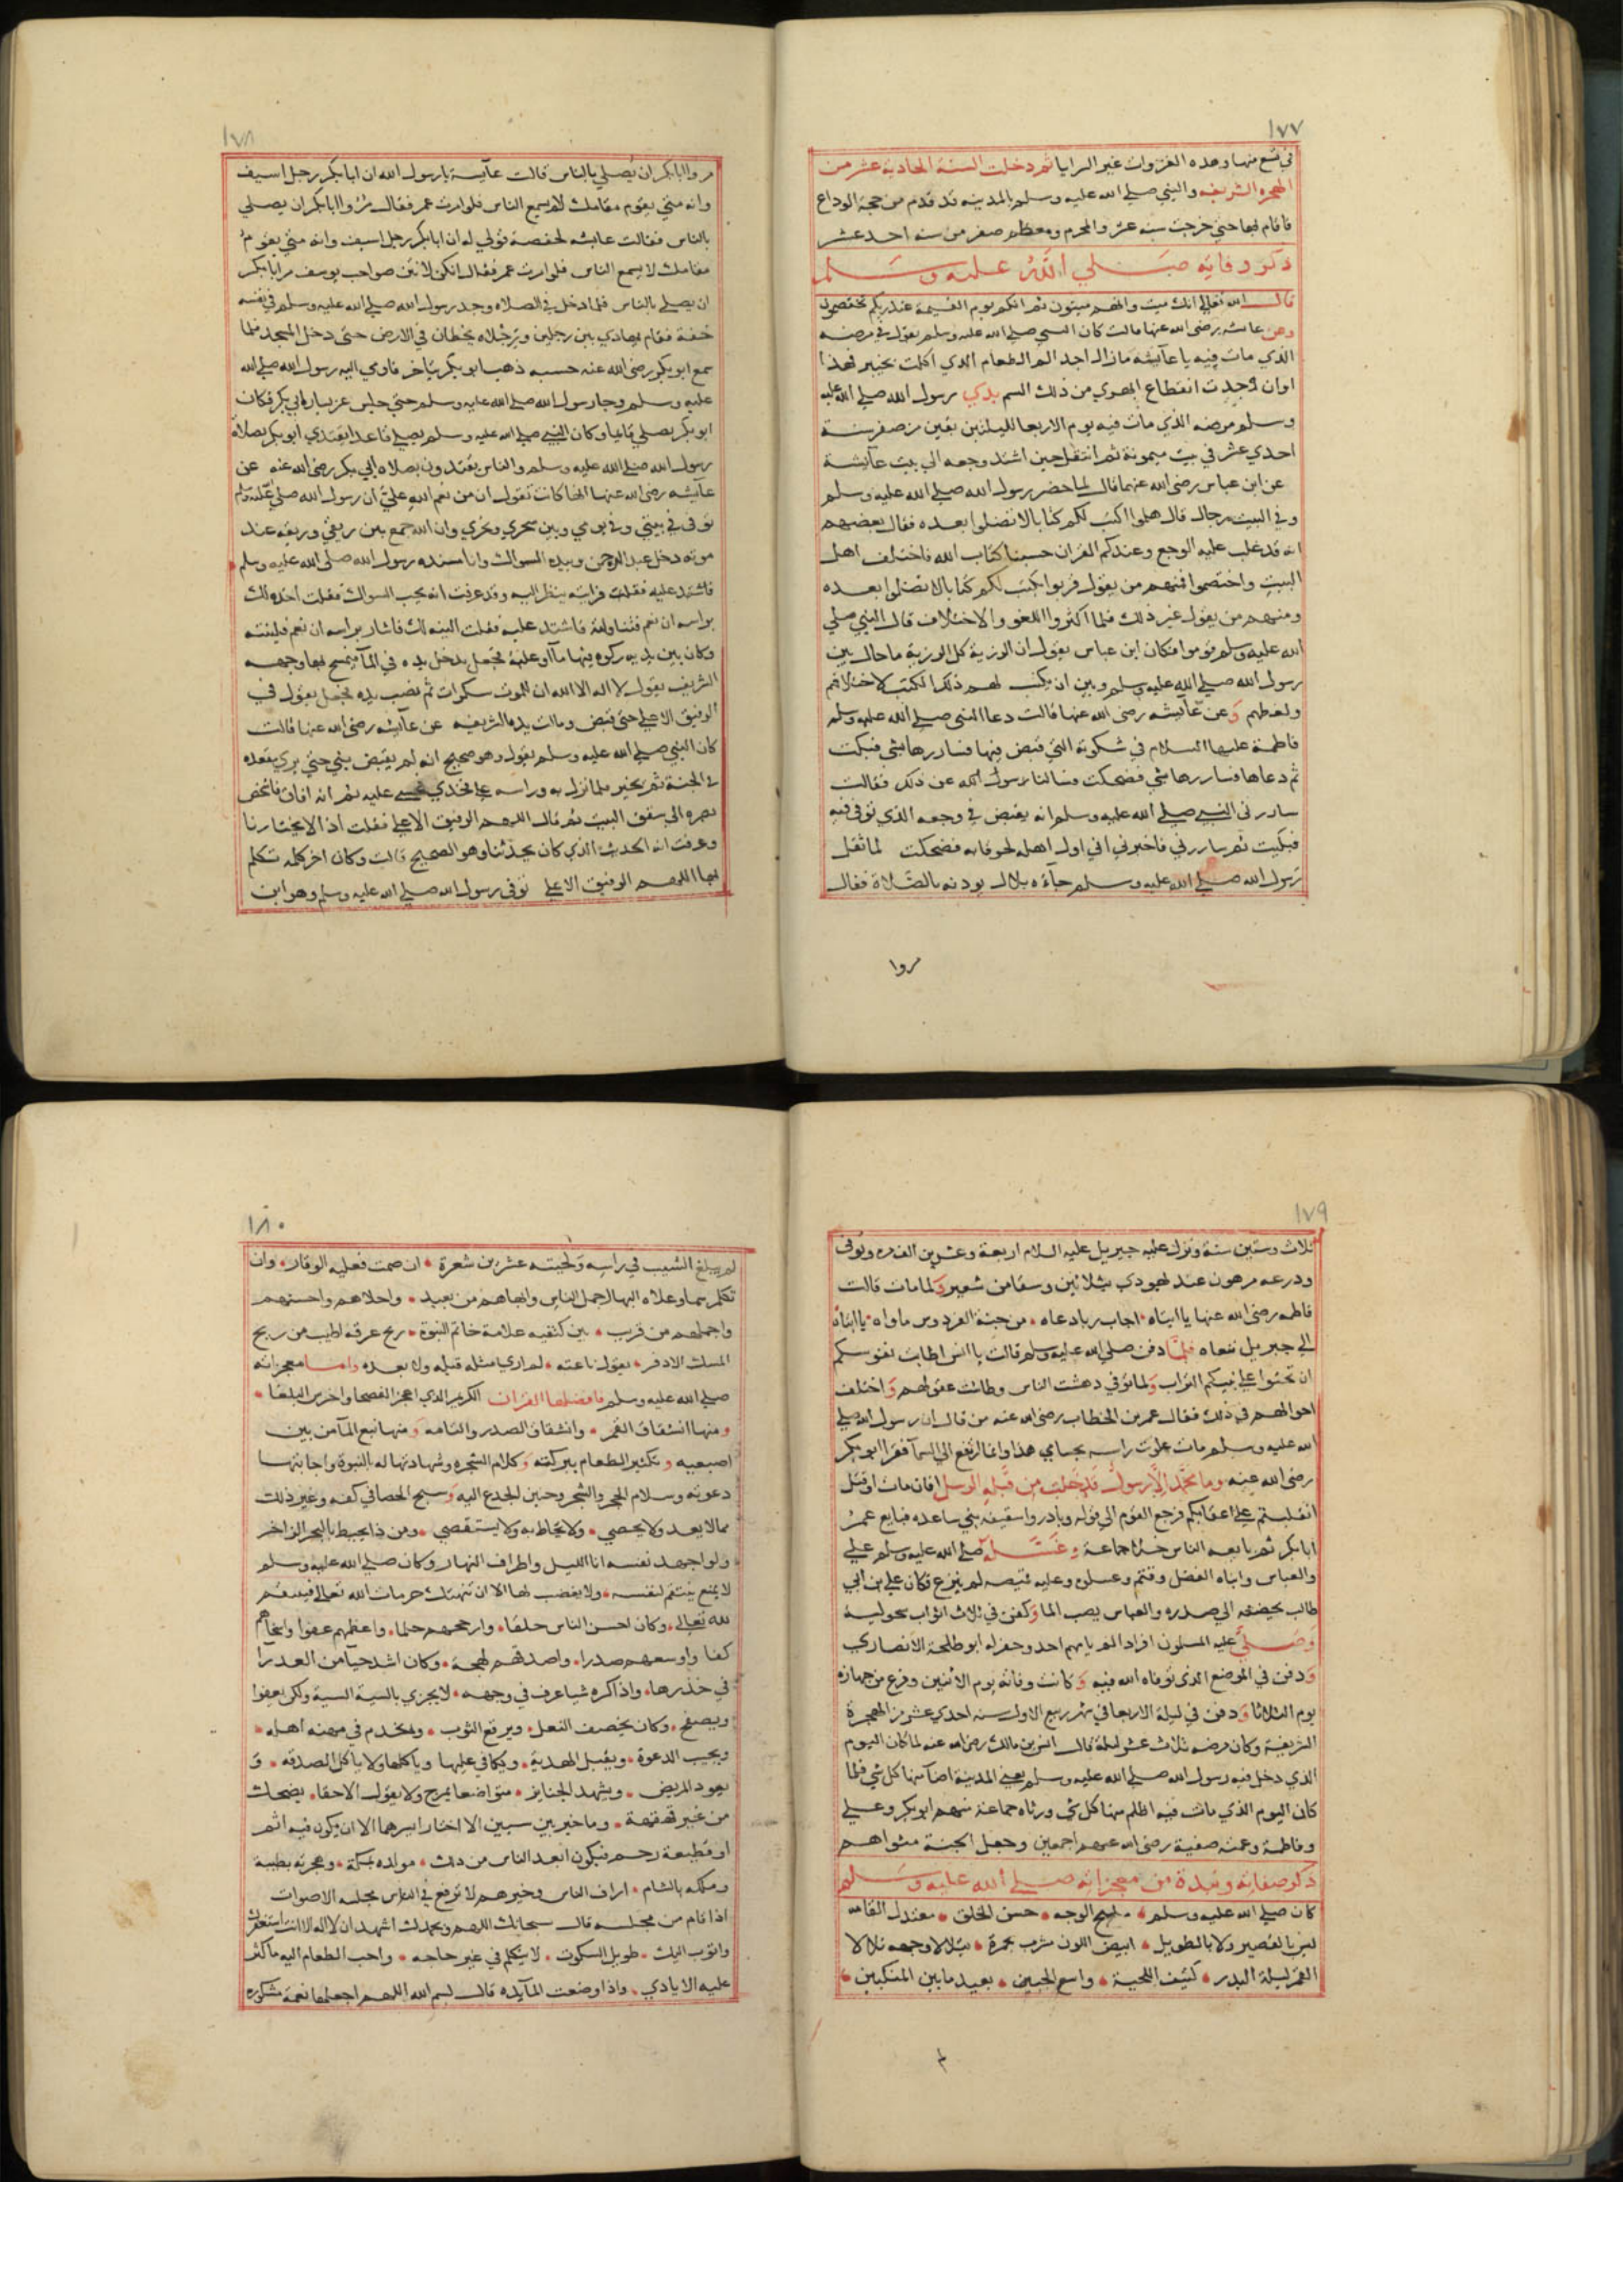 ١٧٧
في تسع منها وهذه الغزوات غير السرايا ثم دخلت السنة الحادية عشر من
الهجرة الشريفه والنبي صلى الله عليه وسلم بالمدينه قد قدم من حجة الوداع
فاقام بها حتى خرجت سنه عشر والمحرم ومعظم صفر من سنه احد عشر
ذكر وفاته صلي الله عليه وسلم
قال الله تعالي انك ميت وانهم ميتون ثم انكم يوم القيمة عند ربكم تختصمون
وعن عائشه رضى الله عنها قالت كان النبي صلى الله عليه وسلم يقول في مرضه
الذي مات فيه يا عآيشه ما زال اجد الم الطعام الذي اكلت بخيبر فهذا
اوان وجدت انقطاع ابهري من ذلك السم بدي رسول الله صلي الله عليه
وسلم مرضه الذي مات فيه يوم الاربعا لليلتين بقين من صفر سنة
احدي عشر في بيت ميمونة ثم انتقل حين اشتد وجعه الي بيت عآيشة
عن ابن عباس رضى الله عنهما قال لما حضر رسول الله صلي الله عليه وسلم
وفي البيت رجال قال هلموا اكتب لكم كتابا لا تضلوا بعده فقال بعضهم
انه قد غلب عليه الوجع وعندكم القران حسبنا كتاب الله فاختلف اهل
البيت واختصموا فمنهم من يقول قربوا يكتب لكم كتابا لا تضلوا بعده
ومنهم من يقول غير ذلك فلما اكثروا اللغو والاختلاف قال النبي صلي
الله عليه وسلم قوموا فكان ابن عباس يقول ان الرزية كل الرزية ما حال بين
رسول الله صلي الله عليه وسلم وبين ان يكتب لهم ذلك الكتب لاختلافهم
ولغطهم وعن عآئيشه رضى الله عنها قالت دعا النبى صلي الله عليه وسلم
فاطمة عليها السلام في شكوته التي قبض فيها فسارها بشي فبكت
ثم دعاها فسارها بشي فضحكت فسالنا رسول الله عن ذلك فقالت
سارني النبي صلي الله عليه وسلم انه يقبض في وجعه الذي توفى فيه
فبكيت ثم سارني فاخبرني اني اول اهله لحوقا به فضحكت لما ثقل
رسول الله صلي الله عليه وسلم جآءه بلال يوذنه بالصلاة فقال
مروا
١٧٨
مروا ابا بكر ان يصلي بالناس قالت عآيسة يا رسول الله ان ابا بكر رجل اسيف
وانه متي يقوم مقامك لا يسمع الناس فلو امرت عمر فقال مروا ابا بكر ان يصلي
بالناس فقالت عائشه لحفصة قولي له ان ابا بكر رجل اسيف وانه متي يقوم
مقامك لا يسمع الناس فلو امرت عمر فقال انكن لانتن صواحب يوسف مر ابا بكر
ان يصلي بالناس فلما دخل في الصلاه وجد رسول الله صلي الله عليه وسلم في نفسه
خفة فقام يهادي بين رجلين ورجلاه يخطان في الارض حتى دخل المسجد فلما
سمع ابو بكر رضى الله عنه حسه ذهب ابو بكر يتاخر فاومي اليه رسول الله صلي الله
عليه وسلم وجا رسول الله صلى الله عليه وسلم حتي جلس عن يساره ابي بكر فكان
ابو بكر يصلي قايما وكان النبي صلي الله عليه وسلم يصلي قاعدا يقتدي ابو بكر بصلاة
رسول الله صلي الله عليه وسلم والناس يقتدون بصلاه ابي بكر رضى الله عنه عن
عآيشه رضى الله عنها انها كانت تقول ان من نعم الله علي ان رسول الله صلي عليه وسلم
توفى في بيتي وفي يومي وبين سحري ونحري وان الله جمع بين ريقي وريقه عند
موته دخل عبد الرحمن وبيده السواك وانا مسنده رسول الله صلى الله عليه وسلم
فاشتد عليه فقلت فرايته ينظر اليه وقد عرفت انه يحب السواك فقلت اخذه لك
براسه ان نعم فتناولته فاشتد عليه فقلت الينه لك فاشار براسه ان نعم فلينته
وكان بين يديه ركوه فيها مآ وعلبة فجعل يدخل يده في المآ فيمسح بها وجهه
الشريف يقول لا اله الا الله ان للموت سكرات ثم نصب يده فجعل يقول في
الرفيق الاعلي حتى قبض ومالت يده الشريفه عن عآئيشه رضى الله عنها قالت
كان النبي صلي الله عليه وسلم يقول وهو صحيح انه لم يقبض نبي حتي يري مقعده
في الجنة ثم يخير فلما نزل به وراسه علي فخذي غشي عليه ثم انه افاق فاشخص
بصره الى سقف البيت ثم قال اللهم الرفيق الاعلي فقلت اذا لا يختارنا
وعرفت انه الحديث الذي كان يحدثنا وهو الصحيح قالت وكان اخر كلمه تكلم
بها اللهم الرفيق الاعلي توفى رسول الله صلي الله عليه وسلم وهو ابن
١٧٩
ثلاث وستين سنة ونزل عليه جبريل عليه السلام اربعة وعشرين الف مره وتوفى
ودرعه مرهون عند يهودي بثلاثين وسقا من شعير ولما مات قالت
فاطمه رضى الله عنها يا ابتاه اجاب ربا دعاه من جنة الفردوس ماواه يا ابتاه
الي جبريل ننعاه فلما دفن صلي الله عليه وسلم قالت يا انس اطابت نفوسكم
ان تحثوا علي نبيكم التراب ولما توفي دهشت الناس وطاشت عقولهم واختلفت
احوالهم في ذلك فقال عمر بن الخطاب رضى الله عنه من قال ان رسول الله صلي
الله عليه وسلم مات علوت راسه بحسامي هذا وانما ارتفع الي السمآ فقرا ابو بكر
رضى الله عنه وما محمد الا رسول قد خلت من قبله الرسل افان مات او قتل
انقلبتم علي اعقابكم فرجع القوم الي قوله وبادروا سقيفة بني ساعده فبايع عمر
ابا بكر ثم بايعه الناس خلا جماعة وغسله صلي الله عليه وسلم علي
والعباس وابناه الفضل وقثم وغسلوه وعليه قميصه لم ينزع فكان علي بن ابي
طالب يحضنه الي صدره والعباس يصب الما وكفن في ثلاث اثواب سحولية
وصلي عليه المسلمون افرادا لم يامهم احد وحفر له ابو طلحة الانصاري
ودفن في الموضع الذى توفاه الله فيه وكانت وفاته يوم الاثنين وفرغ من جهازه
يوم الثلاثا ودفن في ليلة الاربعا في شهر ربيع الاول سنه احدي عشر من الهجرة
الشريفة وكان مرضه ثلاث عشر ليلة قال انس بن مالك رضى الله عنه لما كان اليوم
الذي دخل فيه رسول الله صلي الله عليه وسلم يعني المدينة اضآ منها كل شي فلما
كان اليوم الذي مات فيه اظلم منها كل شي ورثاه جماعة منهم ابو بكر وعلي
وفاطمة وعمته صفية رضى الله عنهم اجمعين وجعل الجنة مثواهم
ذكر صفاته ونبذة من معجزاته صلي الله عليه وسلم
كان صلي الله عليه وسلم مليح الوجه حسن الخلق معتدل القامه
ليس بالقصير ولا بالطويل ابيض اللون مشرب بحمرة يتلالا وجهه تلالا
القمر ليلة البدر كثيف اللحية واسع الجبين بعيد ما بين المنكبين
١٨٠
لم يبلغ الشيب في راسه ولحيته عشرين شعرة ان صمت فعليه الوقار وان
تكلم سما وعلاه البها اجمل الناس وابهاهم من بعيد واحلاهم واحسنهم
واجملهم من قريب بين كتفيه علامة خاتم النبوة ريح عرقه اطيب من ريح
المسك الادفر يقول ناعته لم ار يا مثله قبله ولا بعده واما معجزاته
صلي الله عليه وسلم فافضلها القران الكريم الذي اعجز الفصحا واخرس البلغا
ومنها انشقاق القمر وانشقاق الصدر والتئامه ومنها نبع المآ من بين
اصبعيه وتكثير الطعام ببركته وكلام الشجره وشهادتها له بالنبوة واجابتها
دعوته وسلام الحجر والشجر وحنين الجدع اليه وسبح الحصا في كفه وغير ذلك
مما لا يعد ولا يحصي ولا يحاط به ولا يستقصي ومن ذا يحيط بالبحر الزاخر
ولو اجهد نفسه انا الليل واطراف النهار وكان صلي الله عليه وسلم
لا ينتقم لنفسه ولا يغضب لها الا ان تنتهك حرمات الله تعالي فينتقم
لله تعالي وكان احسن الناس خلقا وارجحهم حلما واعظمهم عفوا واسخاهم
كفا واوسعهم صدرا واصدقهم لهجة وكان اشد حيآ من العدرا
في خدرها واذا كره شيا عرف في وجهه لا يجزي بالسية السية ولكن يعفوا
ويصفح وكان يخصف النعل ويرقع الثوب ويخدم في مهنه اهله
ويجيب الدعوة ويقبل الهدية ويكافي عليها وياكلها ولا ياكل الصدقه و
يعود المريض ويشهد الجنايز متواضعا يمزح ولا يقول الا حقا يضحك
من غير قهقهة وما خير بين سيين الا اختار ايسرهما الا ان يكون فيه اثم
او قطيعة رحم فيكون ابعد الناس من ذلك مولده بمكة وهجرته بطيبة
وملكه بالشام اراف الناس وخيرهم لا ترفع في الناس مجلسه الاصوات
اذا قام من مجلسه قال سبحانك اللهم وبحمدك اشهد ان لا اله الا انت استغفرك
واتوب اليك طويل السكوت لا يتكلم في غير حاجه واحب الطعام اليه ما كثرت
عليه الايادي واذا وضعت المآيده قال بسم الله اللهم اجعلها نعمة مشكوره